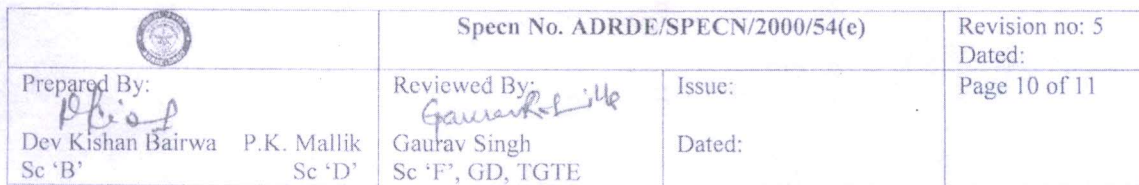 Specn No. ADRDE/SPECN/2000/54(e)
Revision no: 5
Dated:
Prepared By:
Dev Kishan Bairwa P.K. Mallik
Sc ‘B’ Sc ‘D’
Reviewed By:
Gaurav Singh
Sc ‘F’, GD, TGTE
Issue:
Dated:
Page 10 of 11